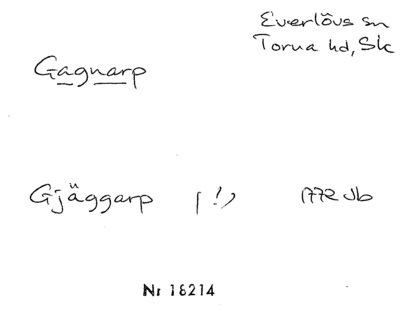 Everlövs sn
Torna hd, Sk
Gagnarp
Gjäggarp (!) 1772 Jb
Nr 18214